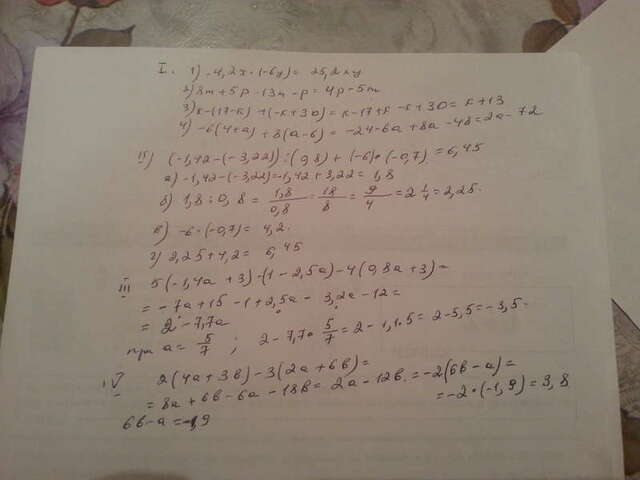 I. 1) -4,2x·(-6y) = 25,2xy
2) 8m + 5p - 13m - p = 4p - 5m
3) k-(17-k) + (-k+30) = k-17+k -k+30 = k+13
4) -6(4+a) + 8(a-6) = -24-6a+8a-48 = 2a-72
II) (-1,42-(-3,22)) : (0,8) + (-6)·(-0,7) = 6,45
а) -1,42-(-3,22) = -1,42+3,22 = 1,8
б) 1,8 : 0,8 = 1,8/0,8 = 18/8 = 9/4 = 2 1/4 = 2,25.
в) -6·(-0,7) = 4,2.
г) 2,25+4,2 = 6,45
III 5(-1,4a+3)-(1-2,5a)-4(0,8a+3) =
= -7a+15-1+2,5a-3,2a-12 =
= 2-7,7a
при a = 5/7 ; 2-7,7·5/7 = 2-1,1·5 = 2-5,5 = -3,5.
IV 2(4a+3b)-3(2a+6b) =
= 8a+6b-6a-18b = 2a-12b = -2(6b-a) =
= -2·(-1,9) = 3,8
6b-a = -1,9